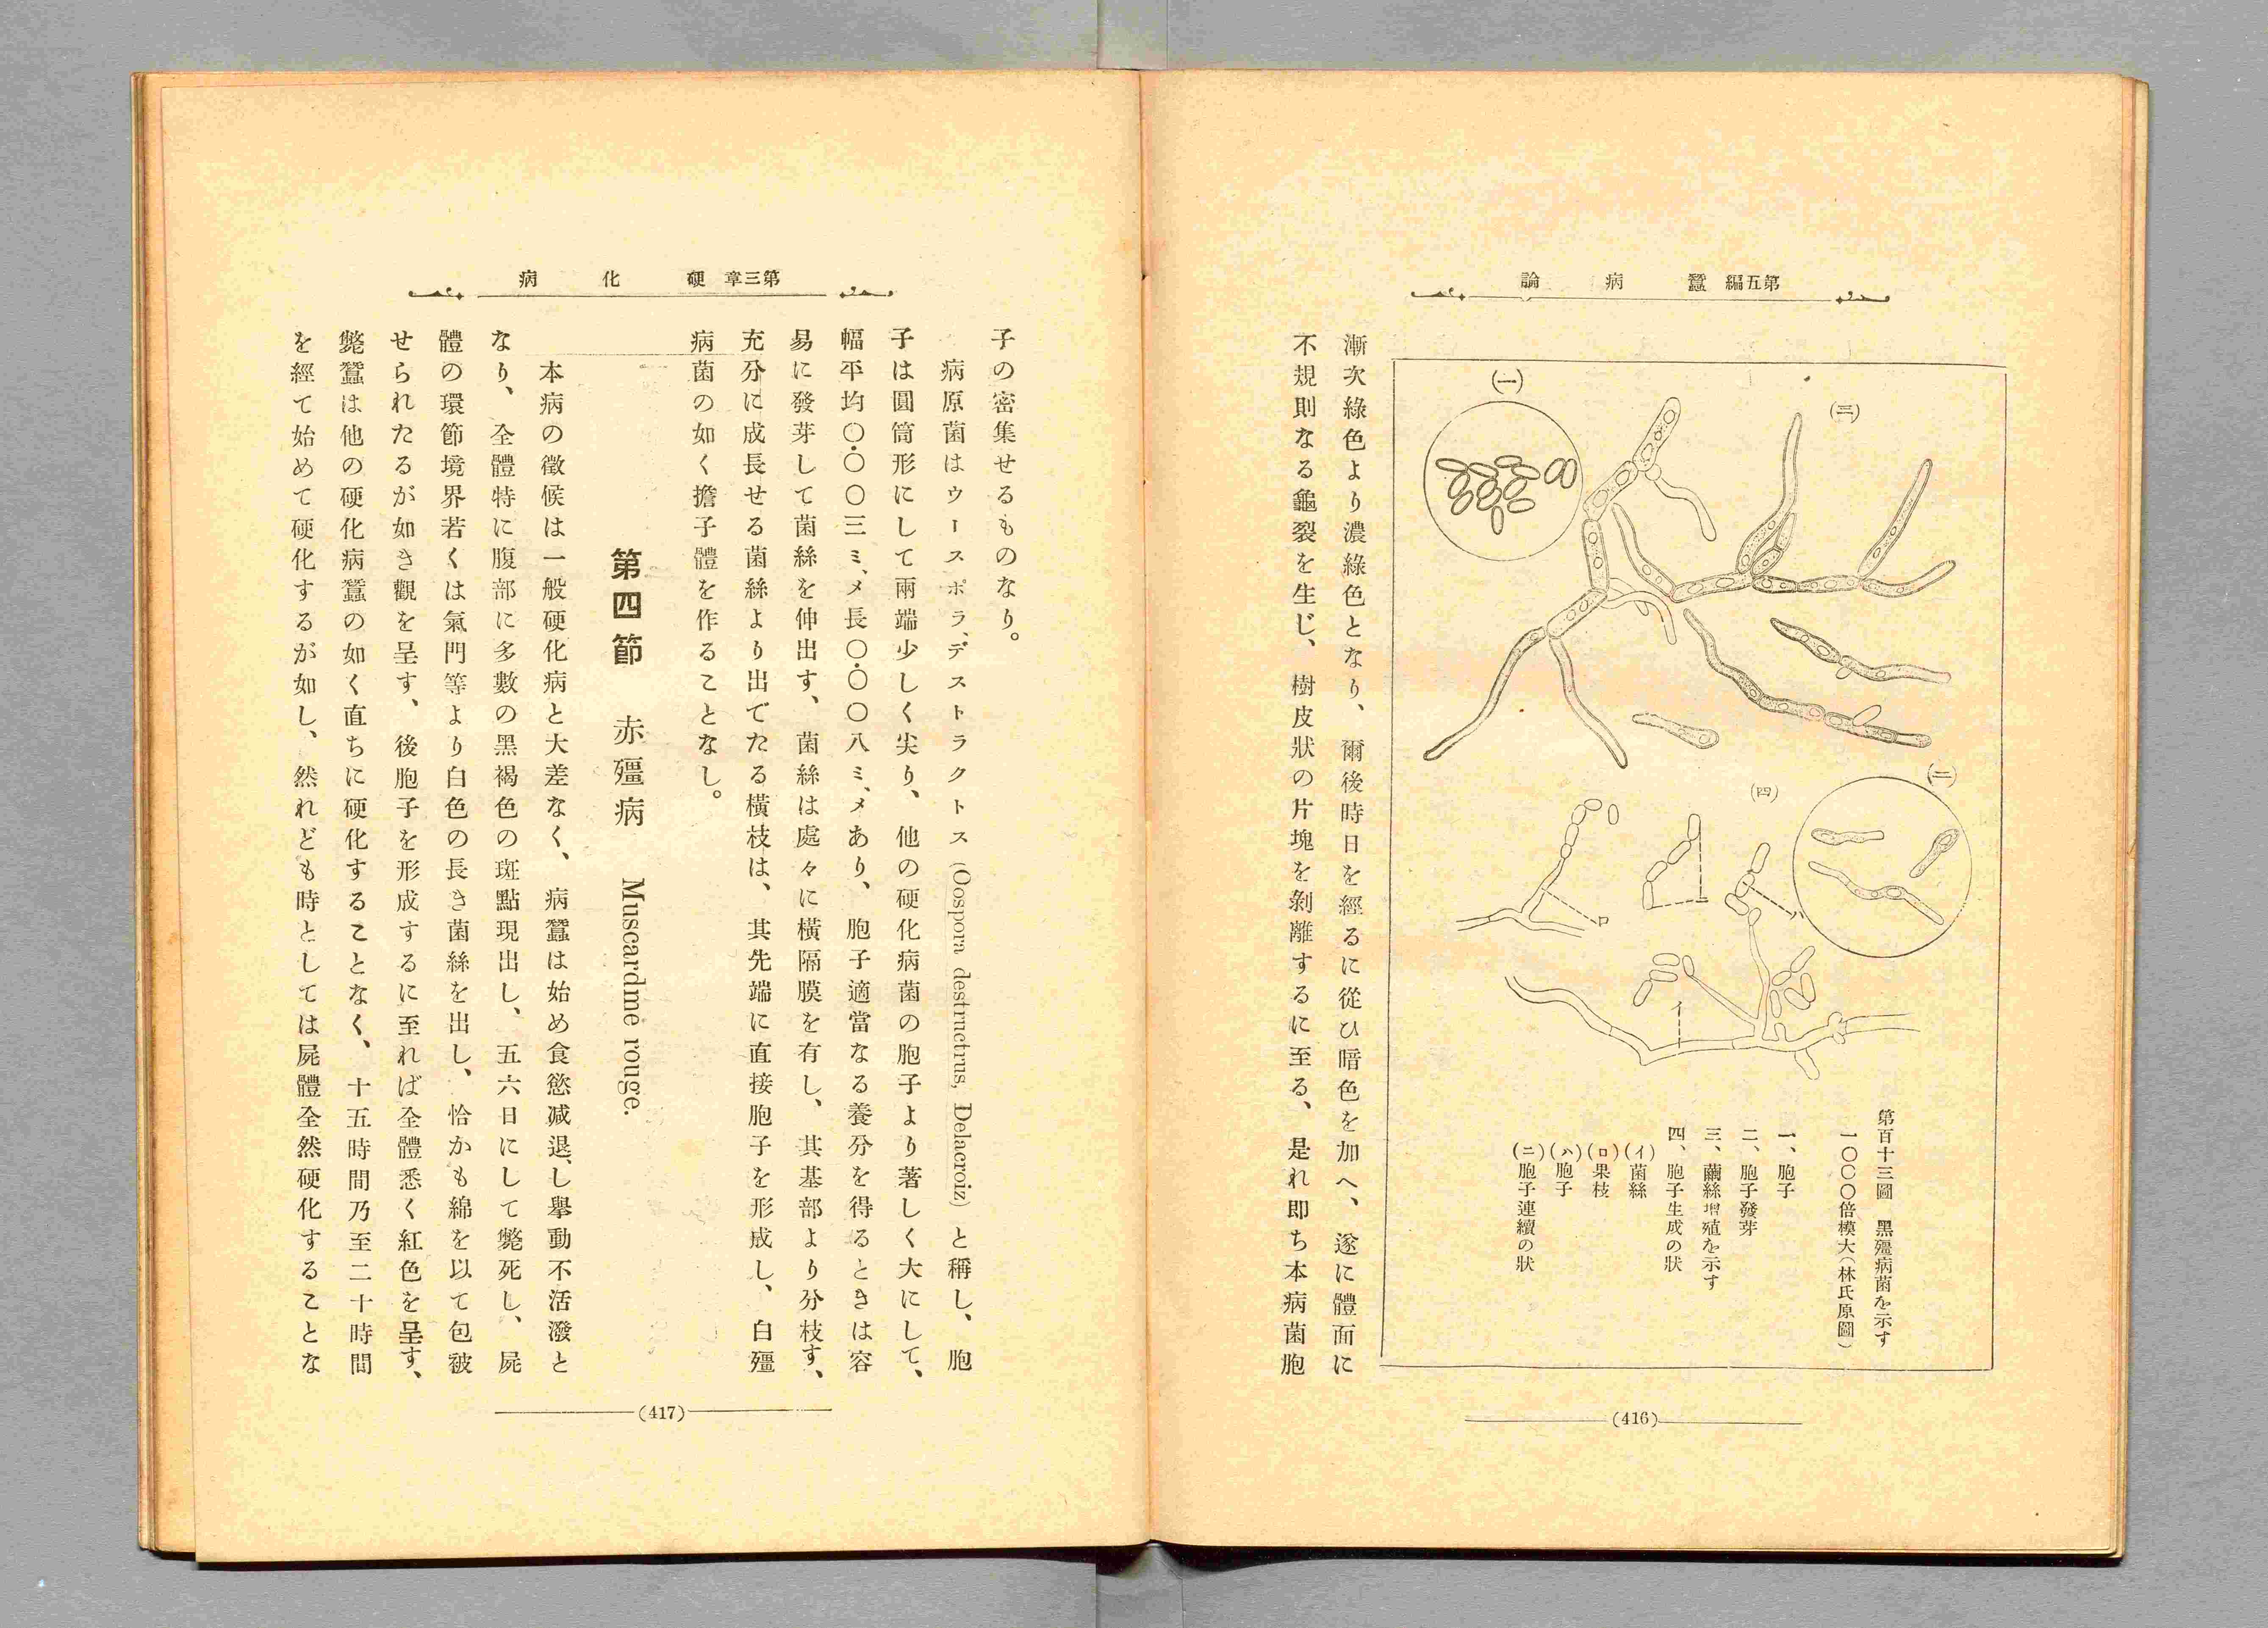 第五編 蠶病論
(一)
(三)
(二)
(四)
ロ
ハ
イ
第百十三圖 黑殭病菌を示す
一〇〇〇倍模大(林氏原圖)
一、胞子
二、胞子發芽
三、繭絲增殖を示す
四、胞子生成の狀
(イ)菌絲
(ロ)果枝
(ハ)胞子
(ニ)胞子連續の狀
漸次綠色より濃綠色となり、爾後時日を經るに從ひ暗色を加へ、遂に體面に
不規則なる龜裂を生じ、樹皮狀の片塊を剝離するに至る、是れ即ち本病菌胞
(416)
第三章 硬化病
子の密集せるものなり。
病原菌はウースポラ、デストラクトス(Oospora destructrus, Delacroiz)と稱し、胞
子は圓筒形にして兩端少しく尖り、他の硬化病菌の胞子より著しく大にして、
幅平均〇・〇〇三ミ、メ長〇・〇〇八ミ、メあり、胞子適當なる養分を得るときは容
易に發芽して菌絲を伸出す、菌絲は處々に橫隔膜を有し、其基部より分枝す、
充分に成長せる菌絲より出でたる橫枝は、其先端に直接胞子を形成し、白殭
病菌の如く擔子體を作ることなし。
第四節 赤殭病 Muscardme rouge.
本病の徵候は一般硬化病と大差なく、病蠶は始め食慾減退し、擧動不活潑と
なり、全體特に腹部に多數の黑褐色の斑點現出し、五六日にして斃死し、屍
體の環節境界若くは氣門等より白色の長き菌絲を出し、恰かも綿を以て包被
せられたるが如き觀を呈す、後胞子を形成するに至れば全體悉く紅色を呈す、
斃蠶は他の硬化病蠶の如く直ちに硬化することなく、十五時間乃至二十時間
を經て始めて硬化するが如し、然れども時としては屍體全然硬化することな
(417)